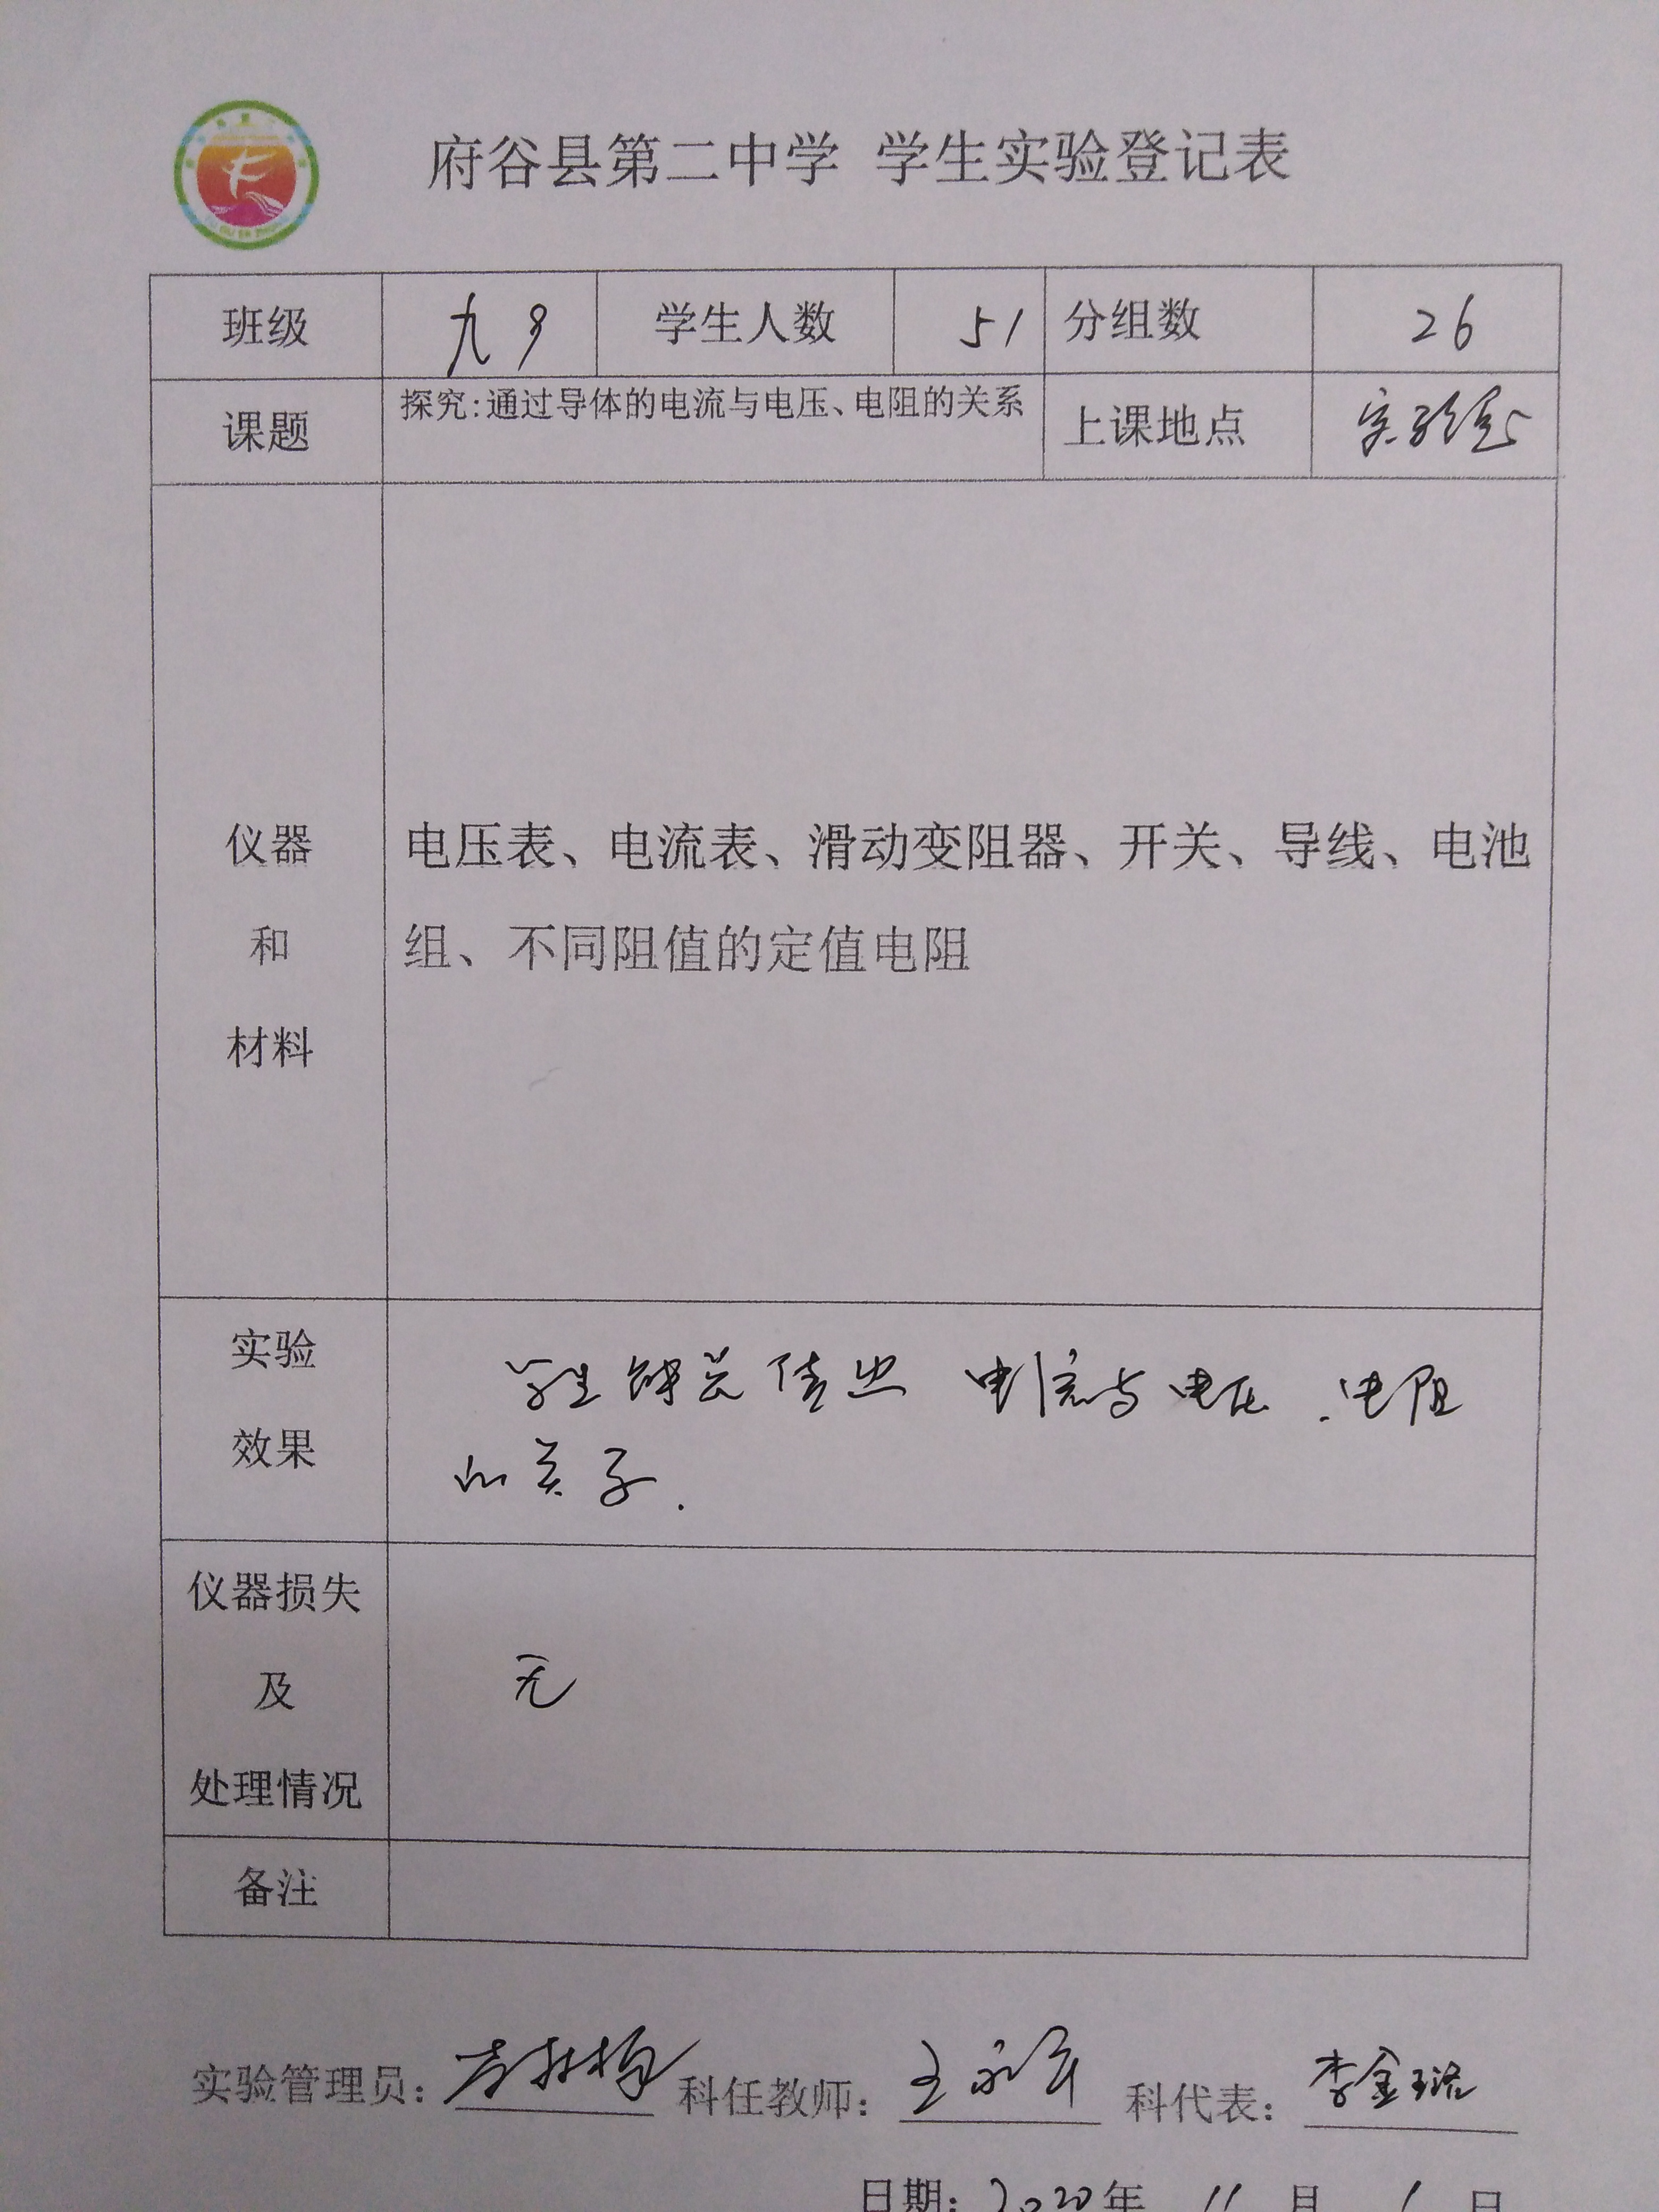 府谷县第二中学 学生实验登记表
班级 九9 学生人数 51 分组数 26
课题 探究:通过导体的电流与电压、电阻的关系 上课地点 实验室
仪器
和
材料
电压表、电流表、滑动变阻器、开关、导线、电池
组、不同阻值的定值电阻
实验
效果
学生 电流与电压、电阻
的关系.
仪器损失
及
处理情况
无
备注
实验管理员: 科任教师: 王 科代表: 李金
日期: 2020年 11月 1日